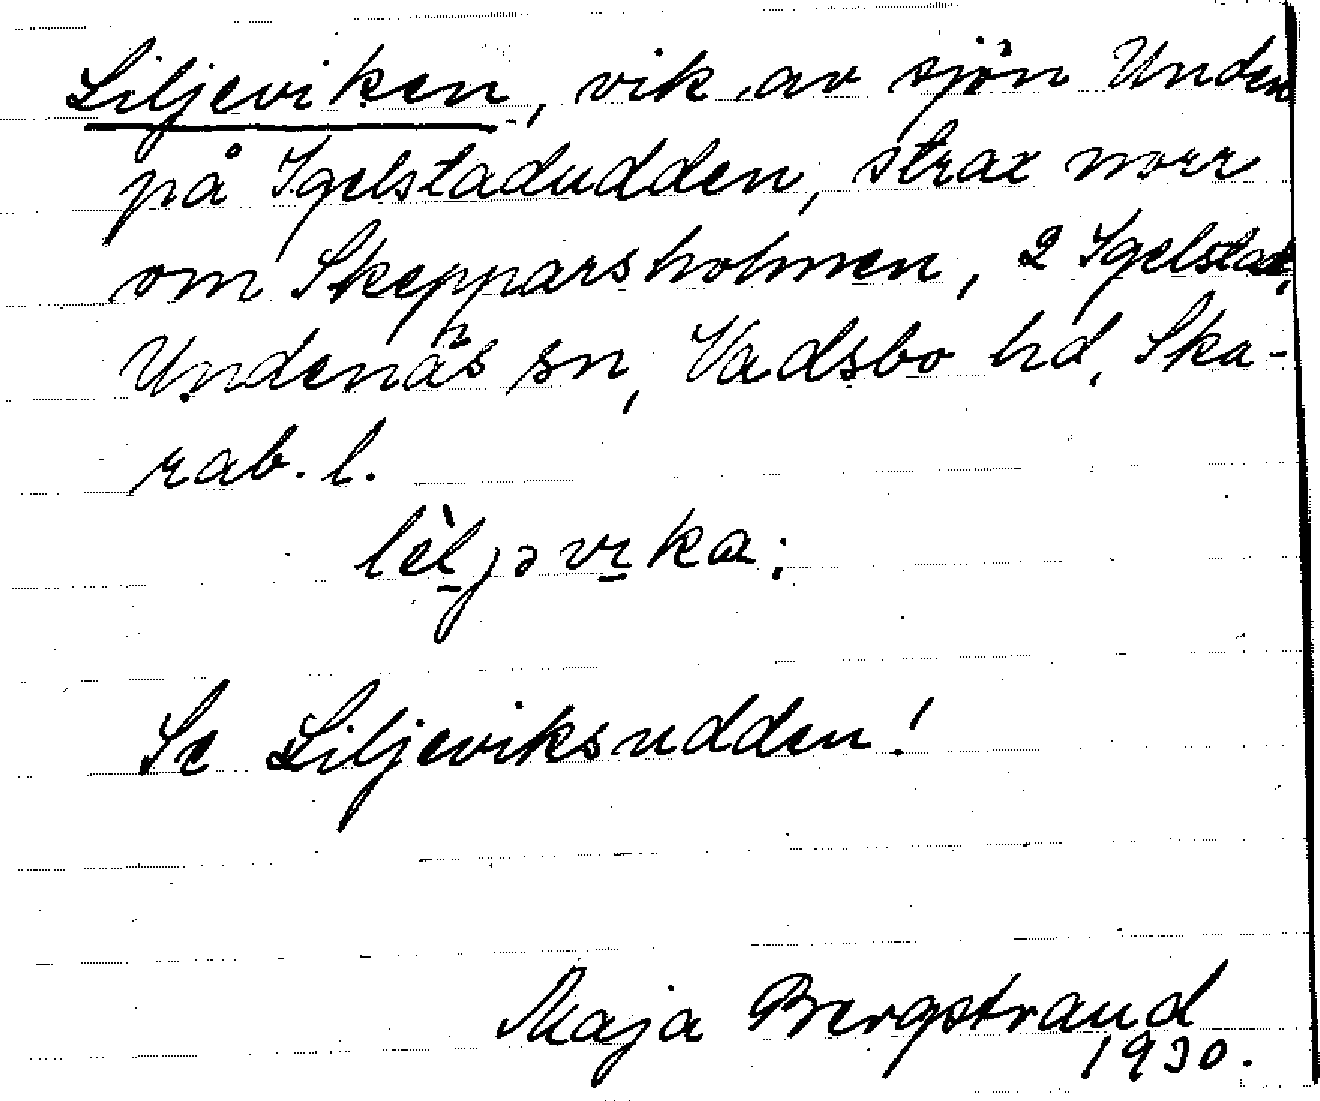 Liljeviken, vik av sjön Unden
på Igelstadudden, strax norr
om Skepparsholmen, 2 Igelstad,
Undenäs sn, Vadsbo hd, Ska-
rab. l.
lèljəvɩka:
Se Liljeviksudden!
Maja Bergstrand
1930.